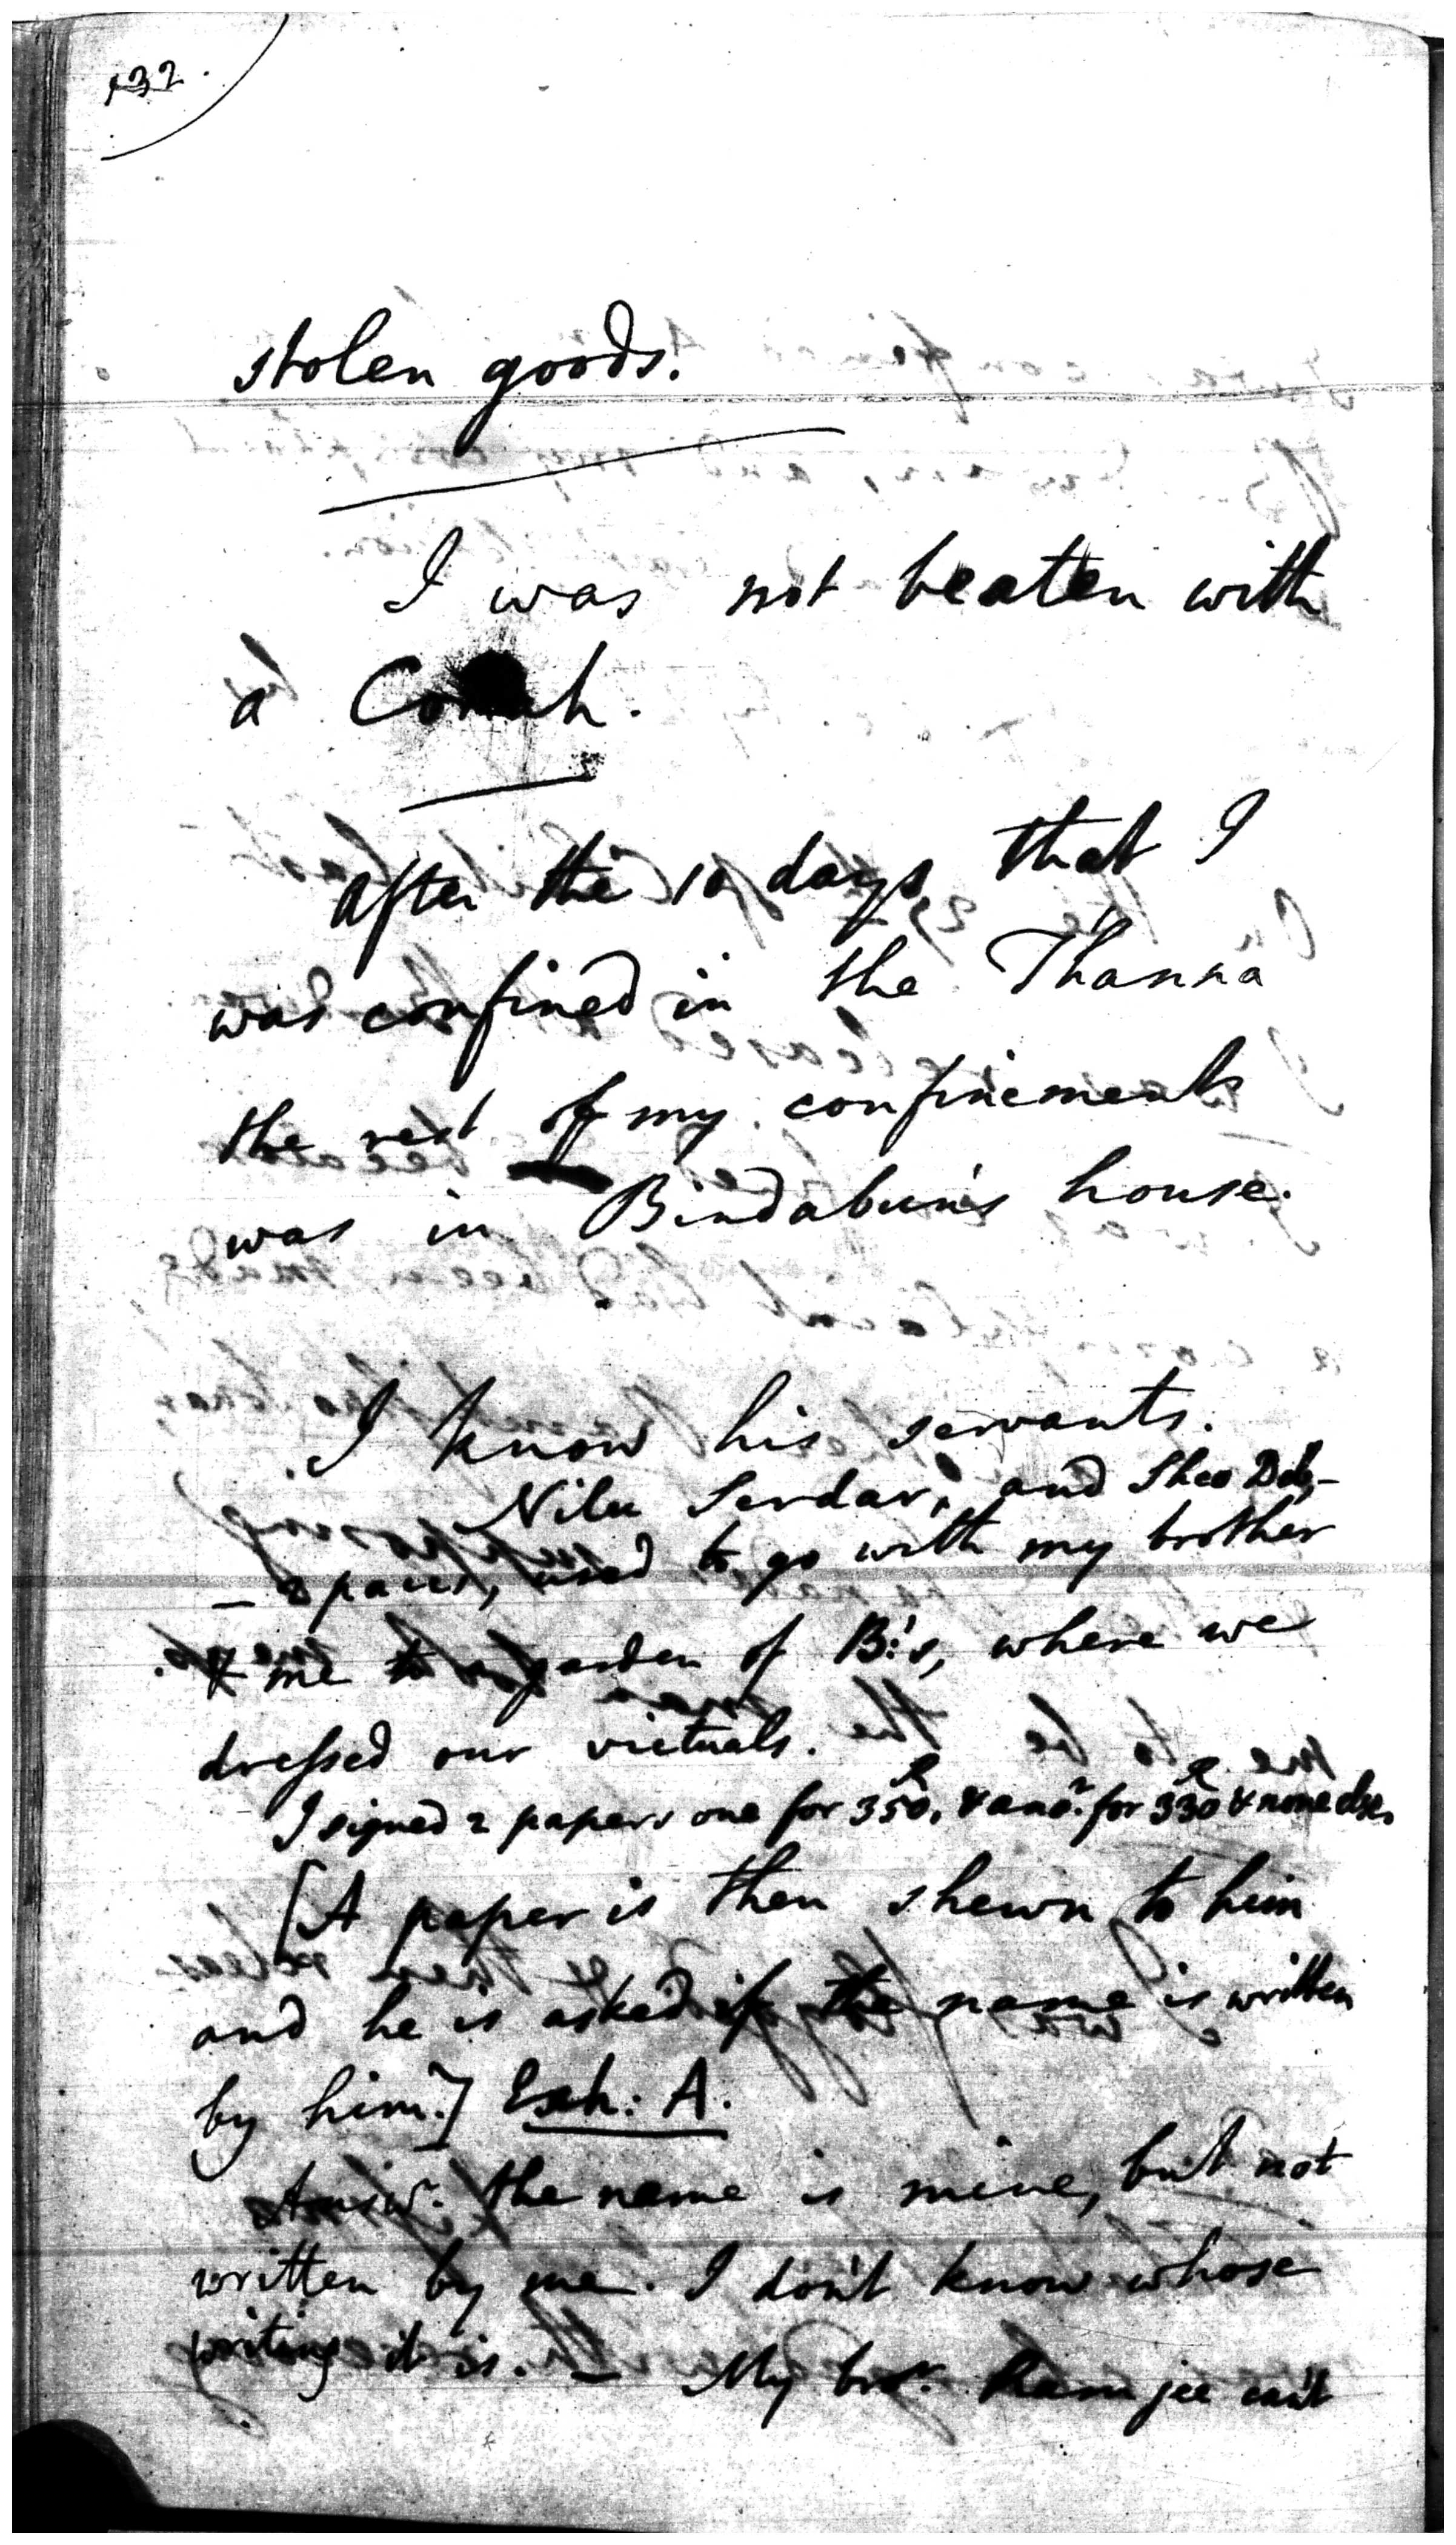 132.
stolen goods.
I was not beaten with
a
After the 10 days that I
was confined in the Thanna
the rest of my confinement
was in Bindabun's house.
I know his servants.
Nilu Serdar, and Sheo
2 paces, used to go with my brother
& me to a garden of B:'s, where we
dressed our victuals.
I signed 2 papers one for 350, & ano.r for 330 & none else.
[A paper is then shewn to him
and he is asked if the name is written
by him.] Exh: A.
Answ.r the name is mine, but not
written by me. I don't know whose
writing it is. — My bro.r Ramjee can't